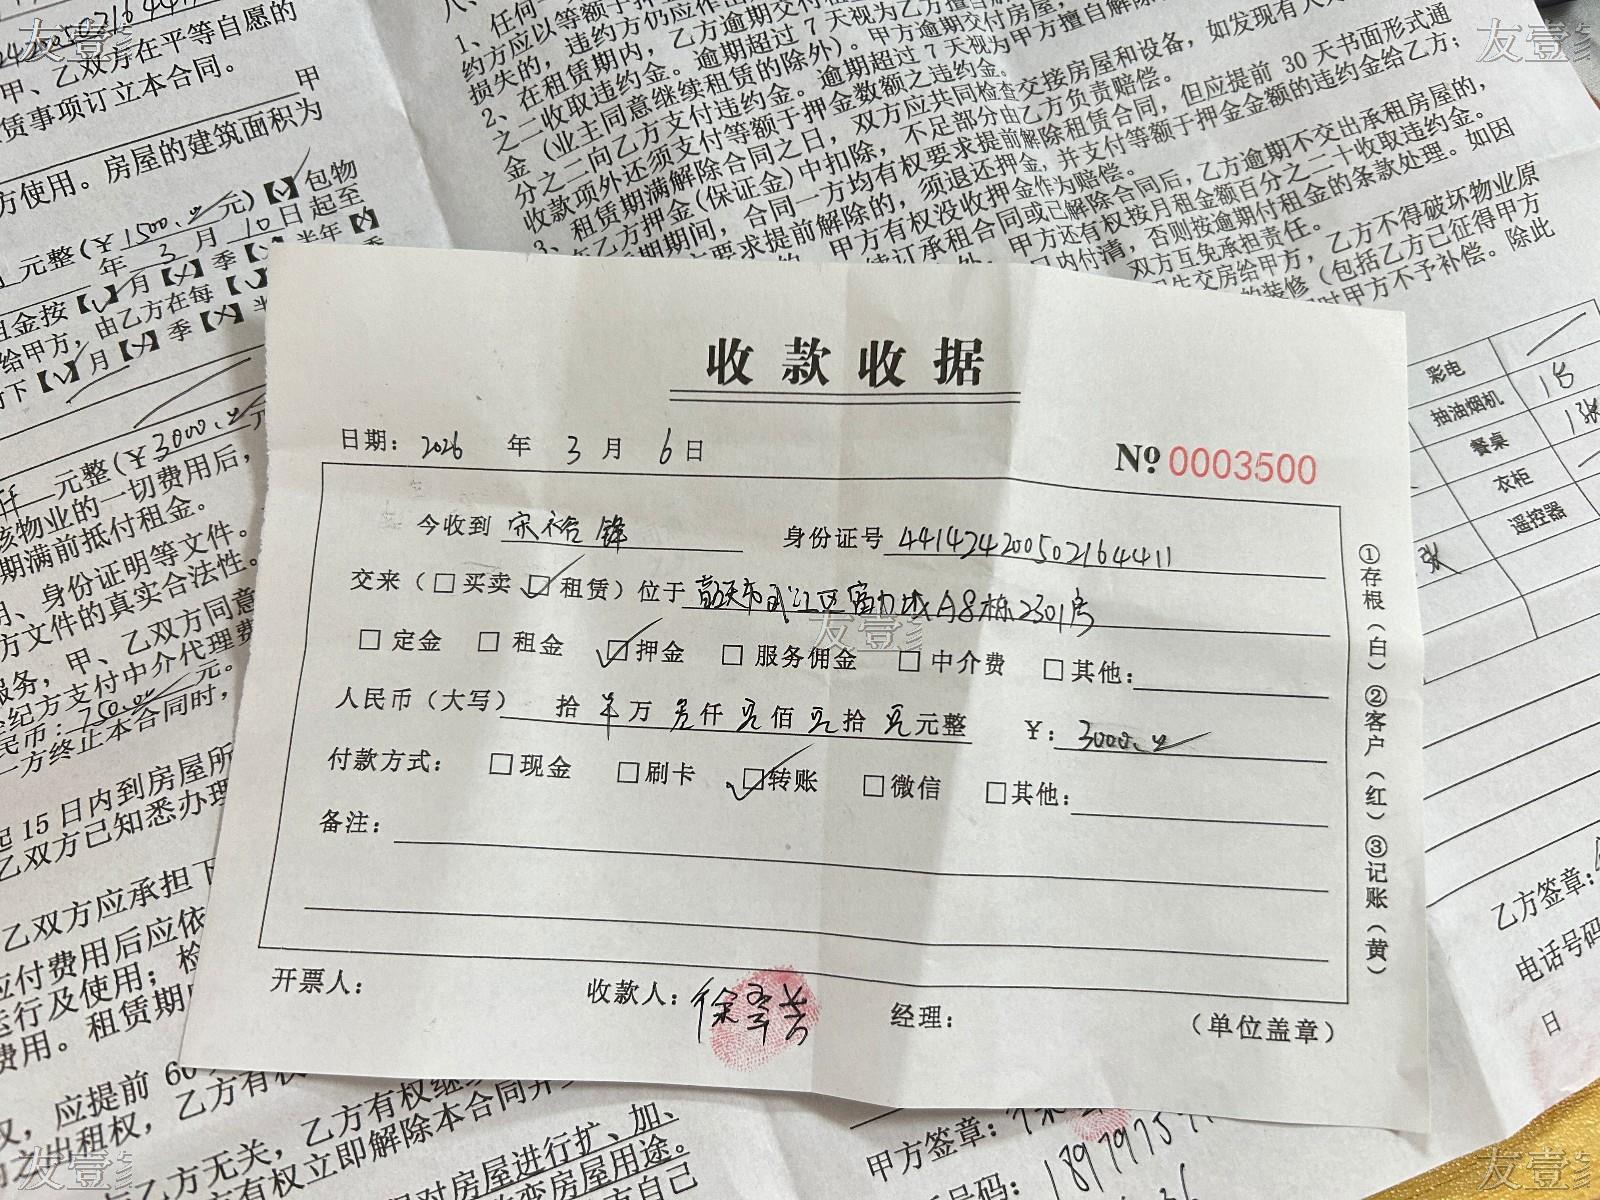 友壹
甲、乙双方在平等自愿的
赁事项订立本合同。
甲
方使用。房屋的建筑面积为
元整(¥1500.00元)【✓】包物
年3月10日起至
租金按【✓】月【×】季【×】半年【×】
给甲方,由乙方在每【✓】
【✓】月【×】季【×】半
元整(¥3000.00元
该物业的一切费用后,
期满前抵付租金。
明、身份证明等文件。
方文件的真实合法性。
服务,甲、乙双方同意
经纪方支付中介代理费
民币:750.00元。
一方终止本合同时,
起15日内到房屋所
乙双方已知悉办理
乙双方应承担下
应付费用后应依
运行及使用;检
费用。租赁期
权,应提前60
之出租权,乙方有权
与乙方无关,乙方有权继续
有权立即解除本合同并
对房屋进行扩、加、
改变房屋用途。
方自己
1、任何一
约方应以等额于押
损失的,违约方仍应作出
2、在租赁期内,乙方逾期交付租
之二收取违约金。逾期超过7天视为乙方擅自解
金(业主同意继续租赁的除外)。甲方逾期交付房屋,
分之二向乙方支付违约金。逾期超过7天视为甲方擅自解除
收款项外还须支付等额于押金数额之违约金。
3、租赁期满解除合同之日,双方应共同检查交接房屋和设备,如发现有人为
在乙方押金(保证金)中扣除,不足部分由乙方负责赔偿。
期期间,合同一方均有权要求提前解除租赁合同,但应提前30天书面形式通
方要求提前解除的,须退还押金,并支付等额于押金金额的违约金给乙方;
甲方有权没收押金作为赔偿。
续订承租合同或已解除合同后,乙方逾期不交出承租房屋的,
外,甲方还有权按月租金额百分之二十收取违约金。
日内付清,否则按逾期付租金的条款处理。如因
双方互免承担责任。
交房给甲方,乙方不得破坏物业原
的装修(包括乙方已征得甲方
时甲方不予补偿。除此
友壹
彩电
抽油烟机 1台
餐桌 1张
衣柜
遥控器
张
收款收据
日期: 2026 年 3 月 6 日
№ 0003500
今收到 宋裕锋 身份证号 441424200502164411
交来(□买卖 ☑租赁)位于 韶关市武江区富力城A8栋2301房
□定金 □租金 ☑押金 □服务佣金 □中介费 □其他:
人民币(大写) 拾 万 叁仟 零佰 零拾 零元整 ¥: 3000.00
付款方式: □现金 □刷卡 ☑转账 □微信 □其他:
备注:
①存根(白)②客户(红)③记账(黄)
开票人: 收款人: 经理: (单位盖章)
友壹
乙方签章:
电话号码
日
甲方签章:
号码:
友壹
友壹